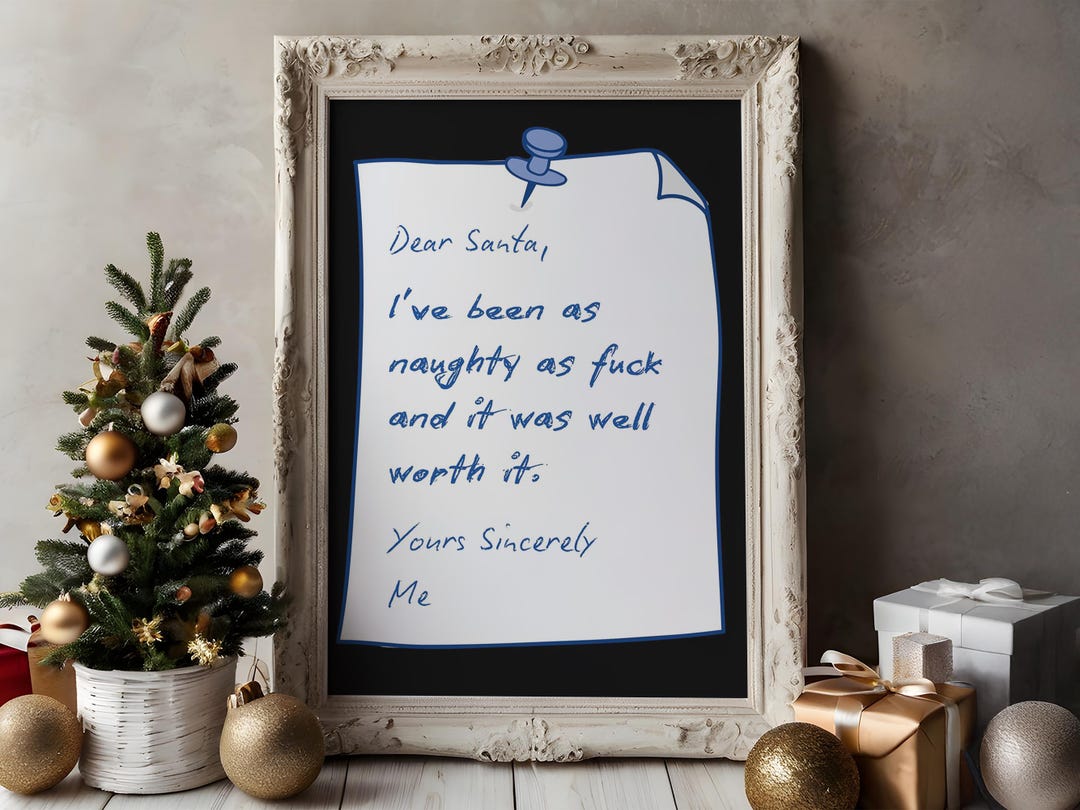 Dear Santa,
I've been as
naughty as fuck
and it was well
worth it.
Yours Sincerely
Me